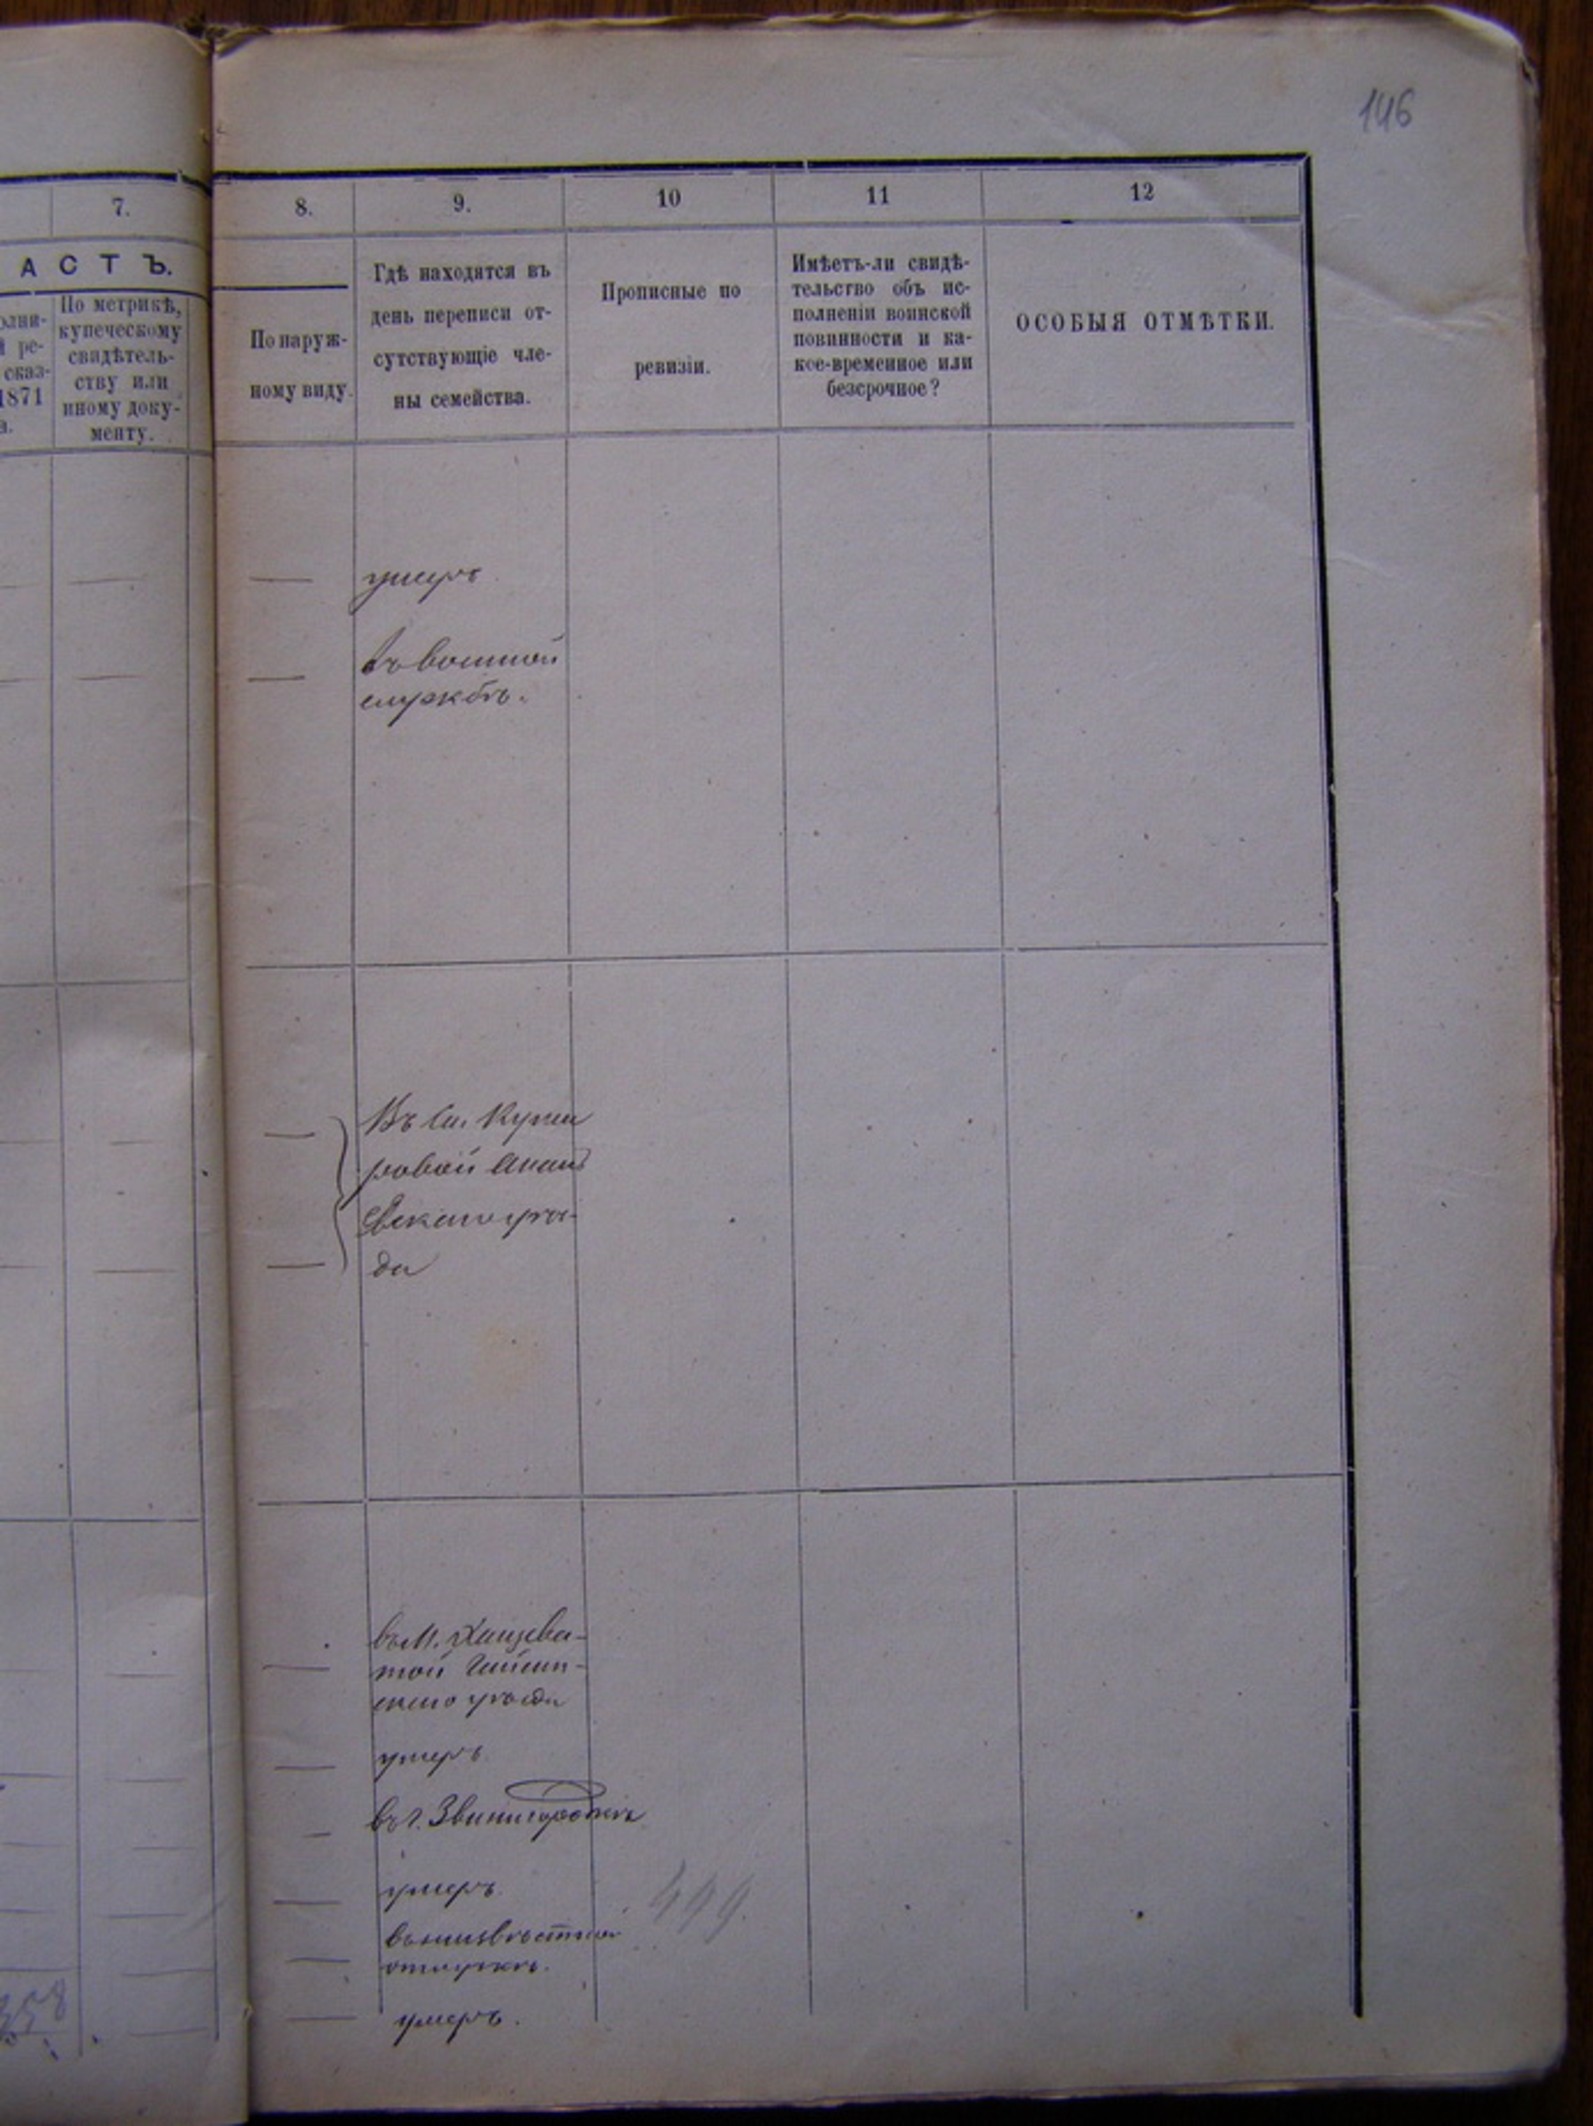 146
7.
8.
9.
10
11
12
АСТЪ.
олни-
й ре-
сказ-
1871
а.
По метрикѣ,
купеческому
свидѣтель-
ству или
иному доку-
менту.
По наруж-
ному виду.
Гдѣ находятся въ
день переписи от-
сутствующіе чле-
ны семейства.
Прописные по
ревизіи.
Имѣетъ-ли свидѣ-
тельство объ ис-
полненіи воинской
повинности и ка-
кое-временное или
безсрочное?
ОСОБЫЯ ОТМѢТКИ.
умеръ
въ военной
службѣ.
Въ
ровой Анань
евскаго уѣз-
да
въ М. Хащева-
той Гайсин-
скаго уѣзда
умеръ
въ г. Звенигородкѣ
умеръ.
въ неизвѣстной
отлучкѣ.
умеръ.
499
358